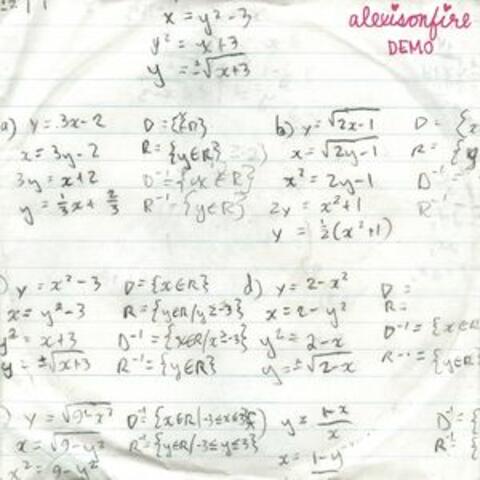 x = y² - 3
y² = x + 3
y = ±√x+3
alexisonfire
DEMO
a) y = 3x - 2
x = 3y - 2
3y = x + 2
y = 1/3 x + 2/3
R = {y∈R}
D⁻¹ = {x∈R}
R⁻¹ = {y∈R}
b) y = √2x-1
x = √2y-1
x² = 2y - 1
2y = x² + 1
y = 1/2 (x² + 1)
D = {x
R = {y
D⁻¹
R⁻¹
) y = x² - 3
x = y² - 3
y² = x + 3
y = ±√x+3
D = {x∈R}
R = {y∈R/y≥-3}
D⁻¹ = {x∈R/x≥-3}
R⁻¹ = {y∈R}
d) y = 2 - x²
x = 2 - y²
y² = 2 - x
y = ±√2-x
D =
R =
D⁻¹ = {x∈R
R⁻¹ = {y∈R
) y = √9-x²
x = √9-y²
x² = 9 - y²
D⁻¹ = {x∈R/-3≤x≤3}
R⁻¹ = {y∈R/-3≤y≤3}
y = 1-x/x
x = 1-y
D⁻¹ = {
R⁻¹ = {